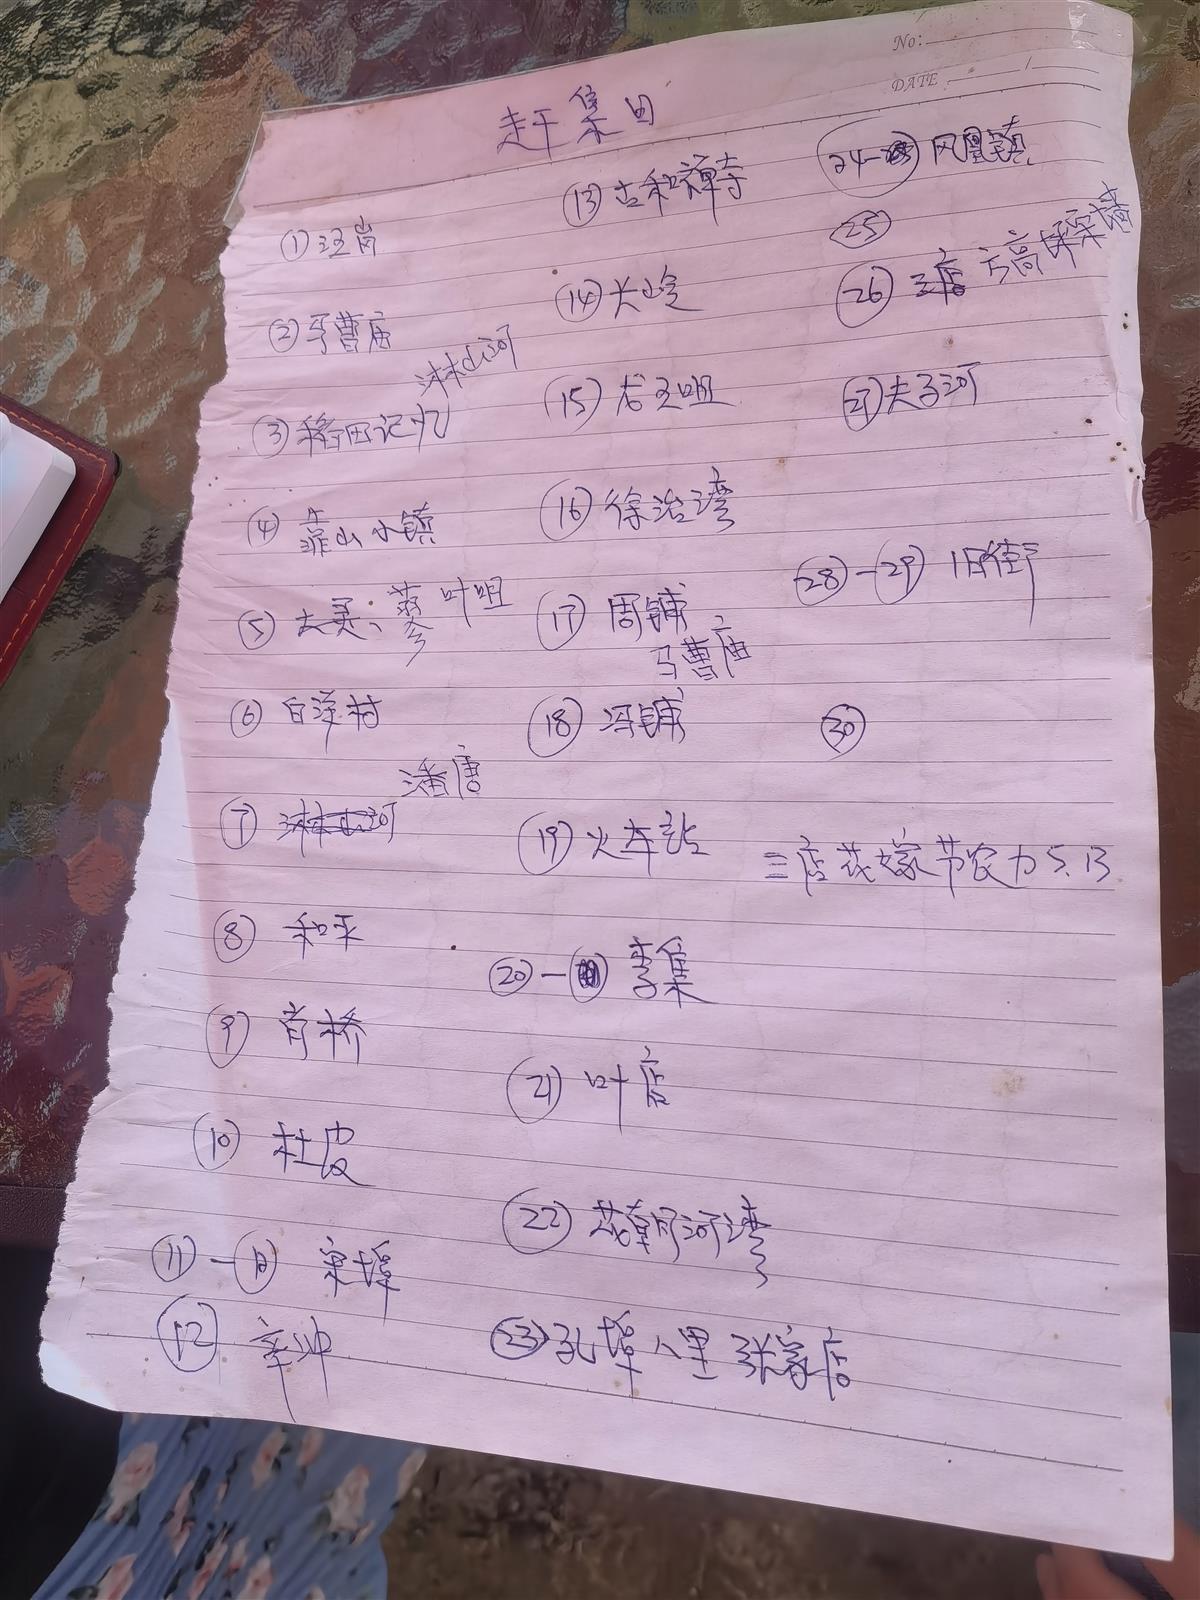 No:
DATE
赶集日
① 汪岗
② 马曹庙
淋山河
③ 稻田记忆
④ 靠山小镇
⑤ 夫灵、蓼叶咀
⑥ 白洋村
潘唐
⑦ 淋山河
⑧ 和平
⑨ 肖桥
⑩ 杜皮
⑪— 宋埠
⑫ 辛冲
⑬ 古和禅寺
⑭ 大屿
⑮ 龙王咀
⑯ 徐治湾
⑰ 周铺
马曹庙
⑱ 冯铺
⑲ 火车站
⑳— 李集
㉑ 叶店
㉒ 花朝河湾
㉓ 孔埠 八里 张家店
㉔— 凤凰镇
㉕
㉖ 三店 方高坪
㉗ 夫子河
㉘—㉙ 旧街
㉚
三店花嫁节农力5.13